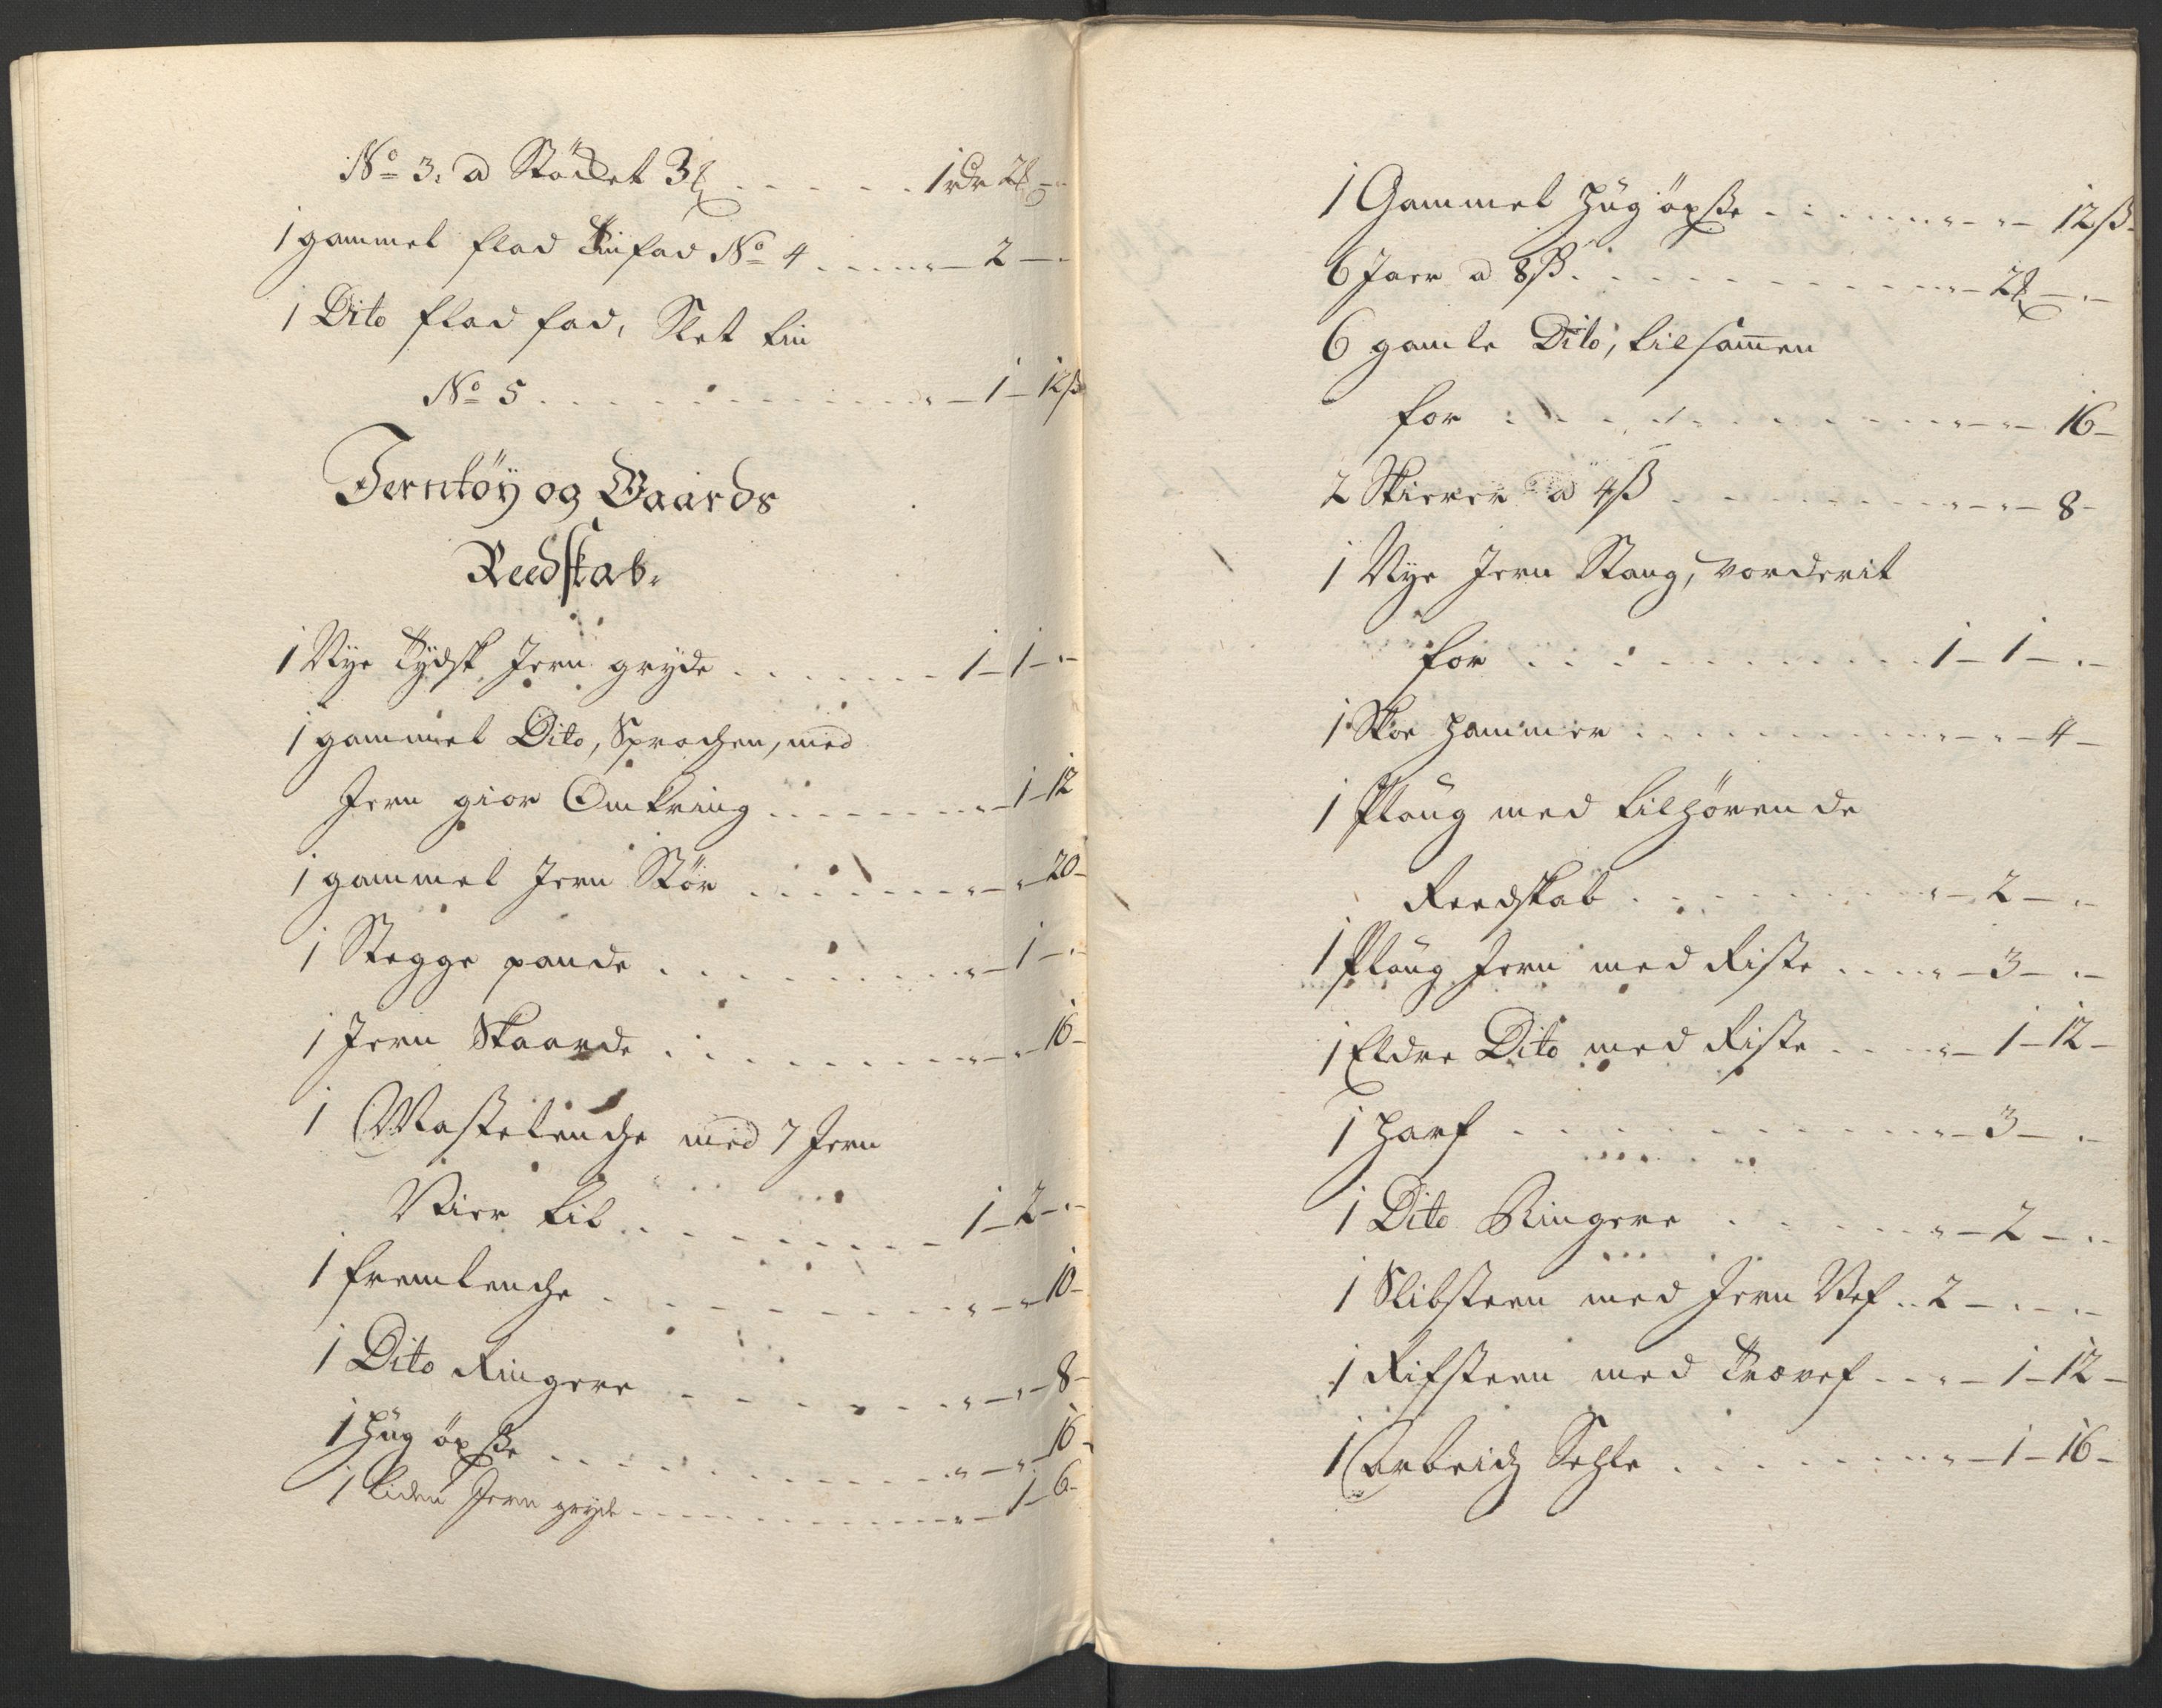 No 3. a Stöcket 3 ₰ . . . . . 1 rdr 2 ₰ – "
1 gammel flad tinfad No 4 . . . . " – 2 – "
1 Dito flad fad, Slet tin
No 5 . . . . . . . . . . " – 1 – 12 ß
Jerntöy og Gaards
Reedskab.
1 Nye Tydsk Jern gryde . . . . . . 1 – 1 – "
1 gammel Dito, Sprochen, med
Jern gior Omkring . . . . . . . " – 1 – 12
1 gammel Jern Stör . . . . . . . " – " – 20 –
1 Stegge pande . . . . . . . . . " – 1 – "
1 Jern Skaarde . . . . . . . . . " – " – 16 –
1 Mastelenche med 7 Jern
Vier til . . . . . . . . 1 – 2 – "
1 fremlenche . . . . . . . . . " – " – 10 –
1 Dito Ringere . . . . . . . . " – " – 8 –
1 Hug öxsse . . . . . . . . . . " – " – 16 –
1 liden Jern gryde . . . . . . . . . " – 1 – 6 –
1 Gammel Hug öxsse . . . . . . " – " – 12 ß –
6 Jaer a 8 ß . . . . . . . . . . . " – 2 ₰ – " –
6 gamle Dito, tilsammen
for . . . . . . . . . . . " – " – 16 –
2 Skierer a 4 ß . . . . . . . . " – " – 8 –
1 Nye Jern Stang, vorderit
for . . . . . . . . . . . 1 – 1 – " –
1 Skoe Hammer . . . . . . . . . " – " – 4 –
1 Ploug med tilhörende
Reedskab . . . . . . . . " – 2 – " –
1 Ploug Jern med Riste . . . . " – 3 – " –
1 Eldre Dito med Riste . . . . " – 1 – 12 –
1 Harf . . . . . . . . . . . . " – 3 – " –
1 Dito Ringere . . . . . . . " – 2 – " –
1 Slibsteen med Jern Vef . . 2 – " – " –
1 Rifsteen med Trævef . . . " – 1 – 12 –
1 Arbeidz Sehle . . . . . . . . " – 1 – 16 –